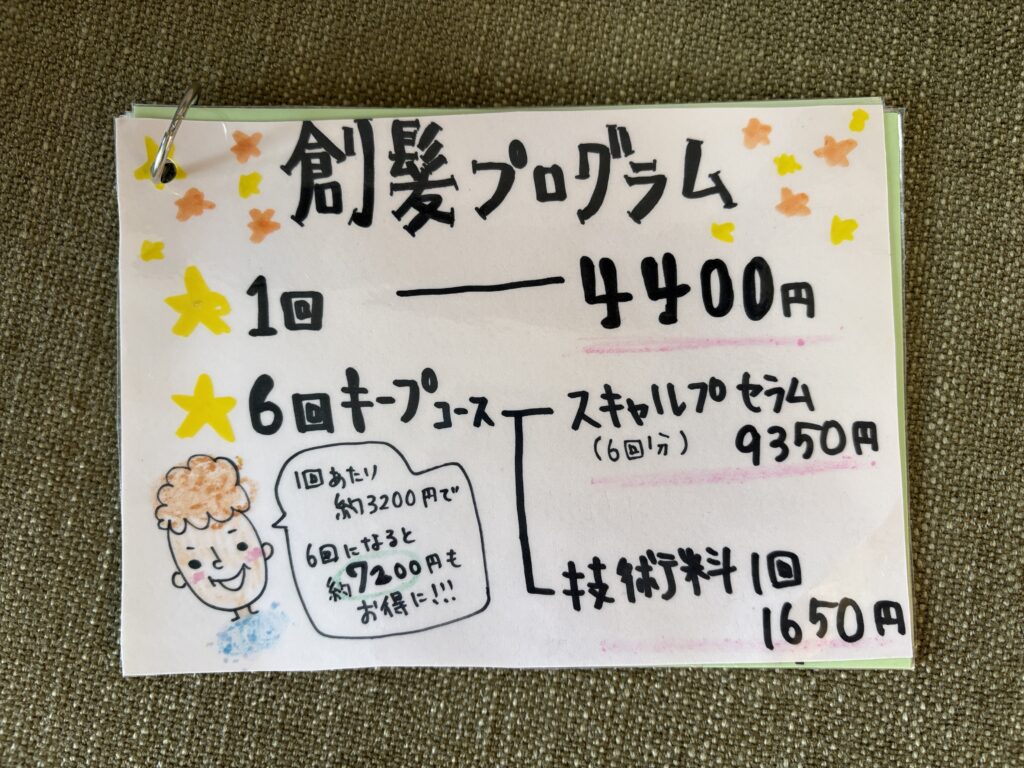 創髪プログラム
1回 4400円
6回キープコース
スキャルプ セラム
(6回分) 9350円
技術料 1回
1650円
1回あたり
約3200円で
6回になると
約7200円も
お得に!!!